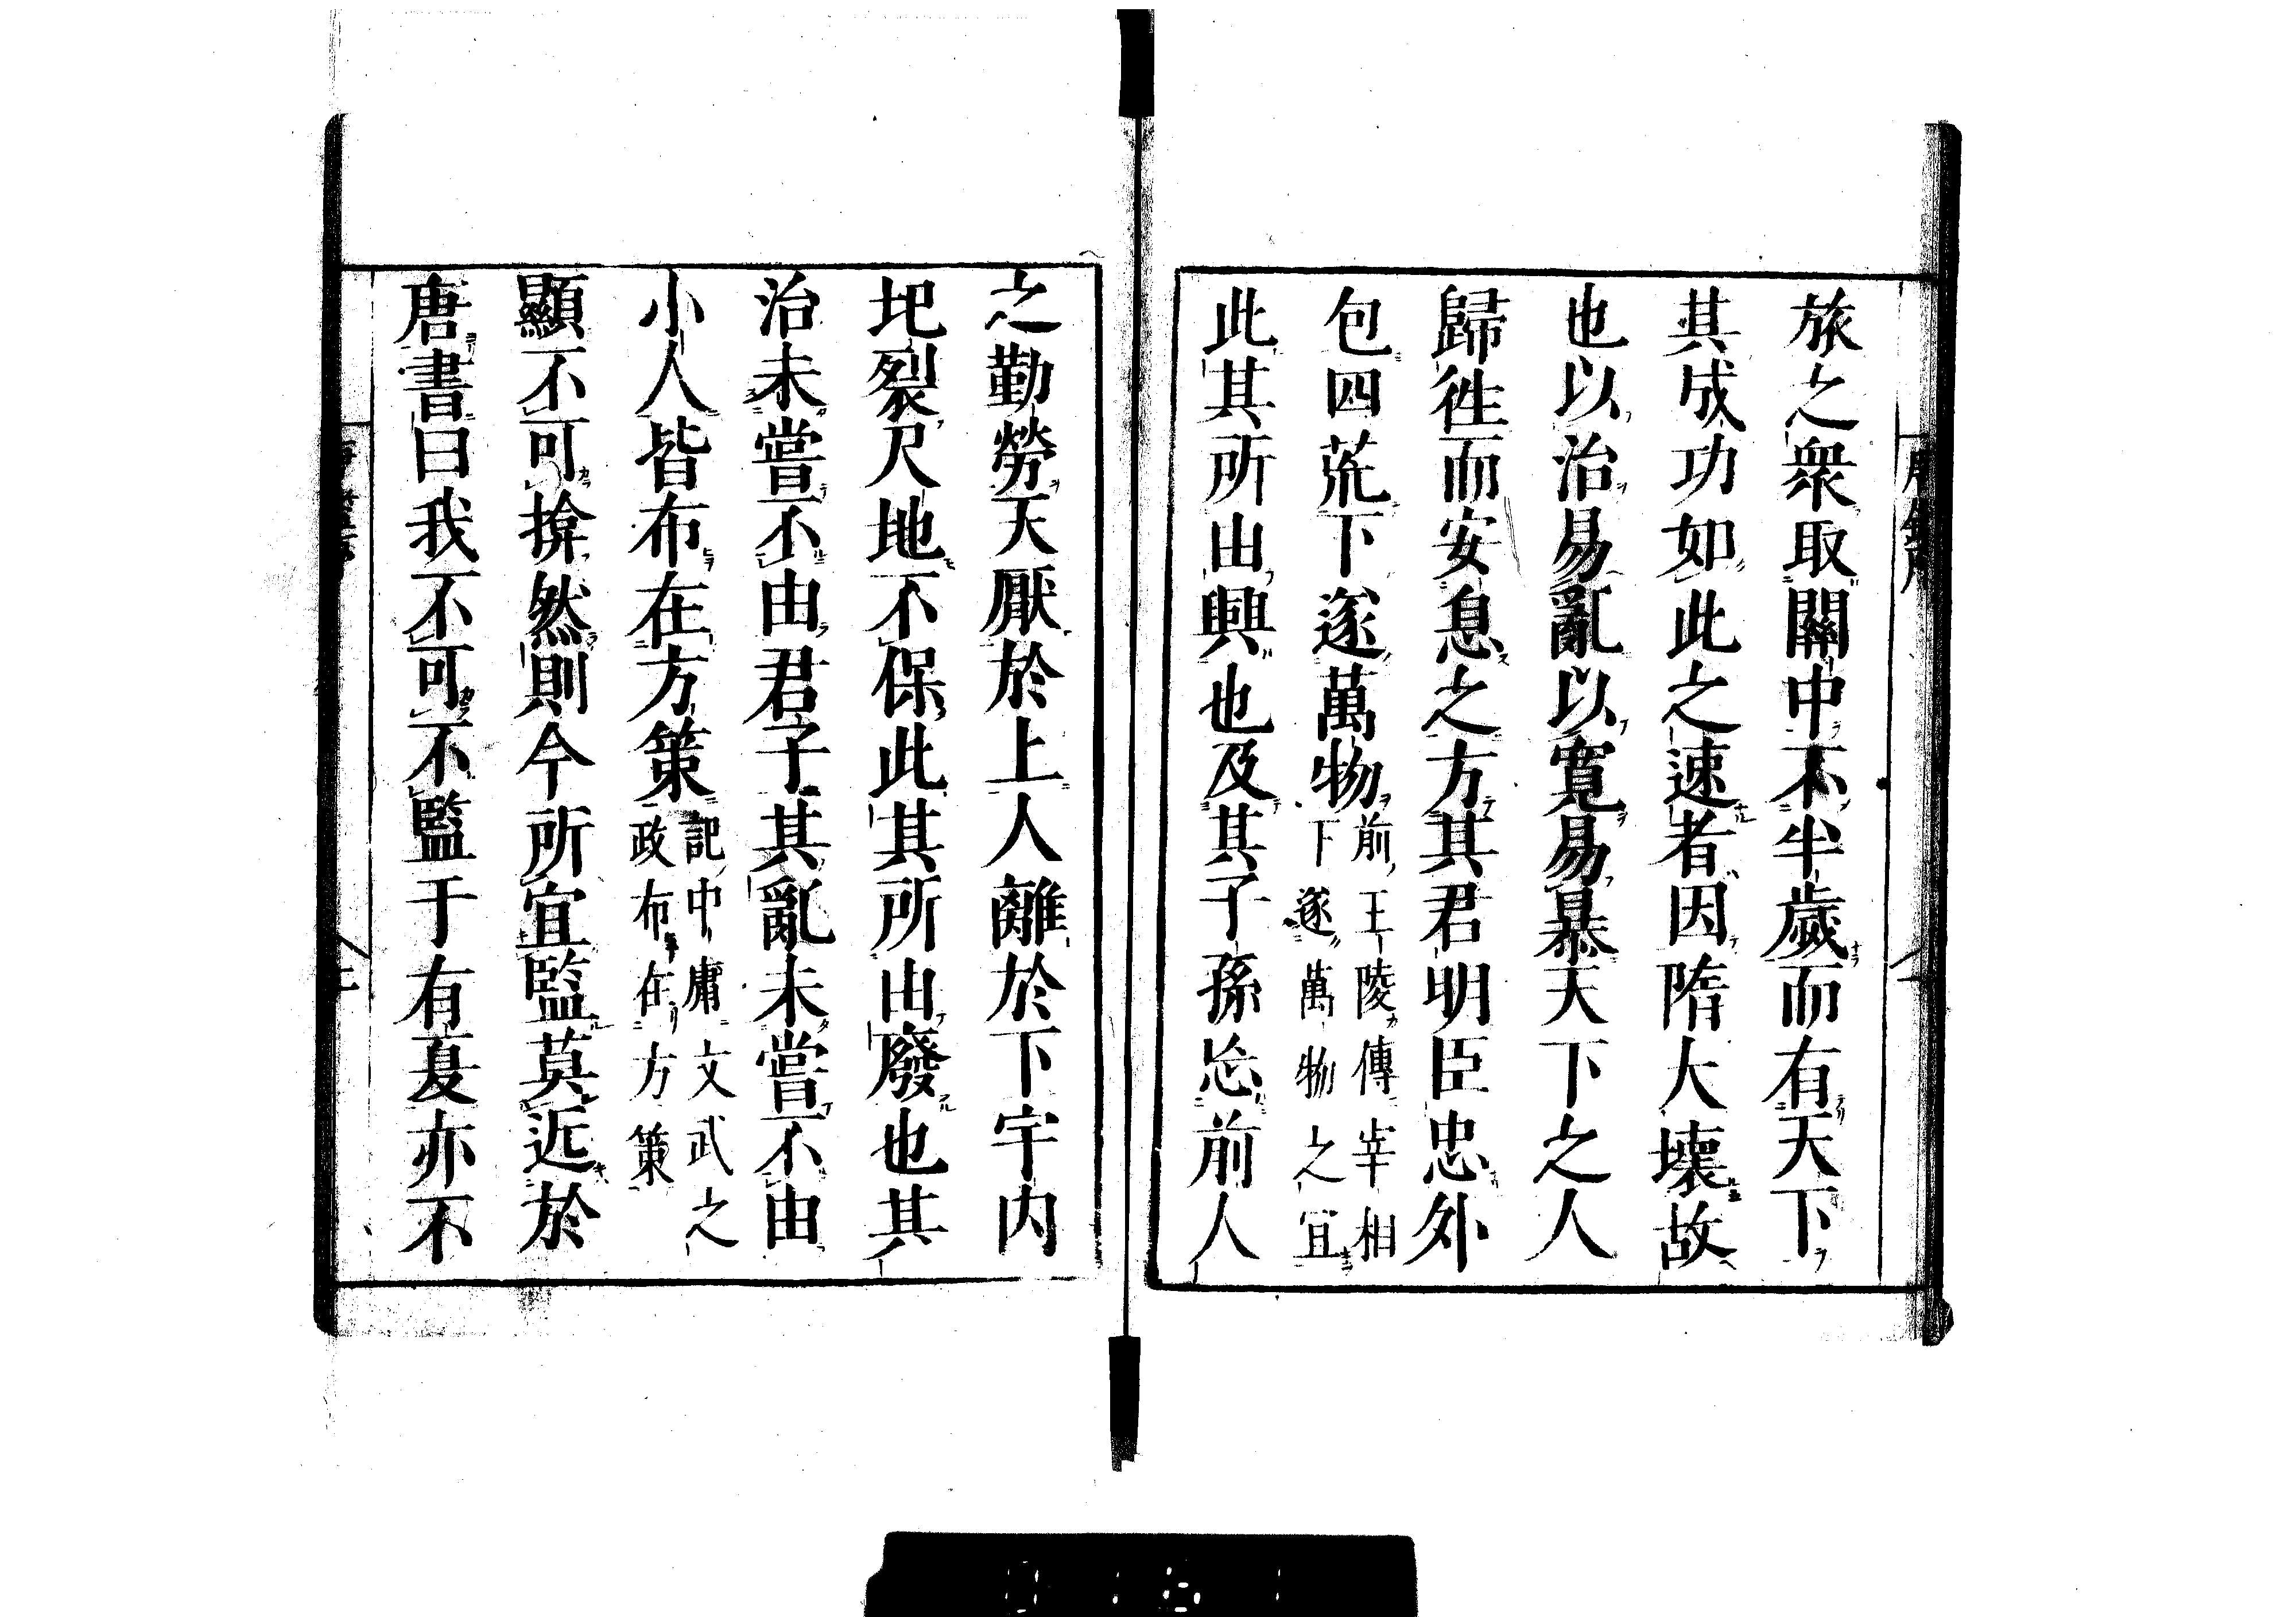 旅之衆取關中不半歲而有天下
其成功如此之速者因隋大壞故
也以治易亂以寬易暴天下之人
歸徃而安息之方其君明臣忠外
包四荒下遂萬物前王陵傳宰相下遂萬物之宜
此其所由興也及其子孫忘前人
之勤勞天厭於上人離於下宇内
圯裂尺地不保此其所由廢也其
治未嘗不由君子其亂未嘗不由
小人皆布在方策記中庸文武之政布在方策
顯不可揜然則今所宜監莫近於
唐書曰我不可不監于有夏亦不